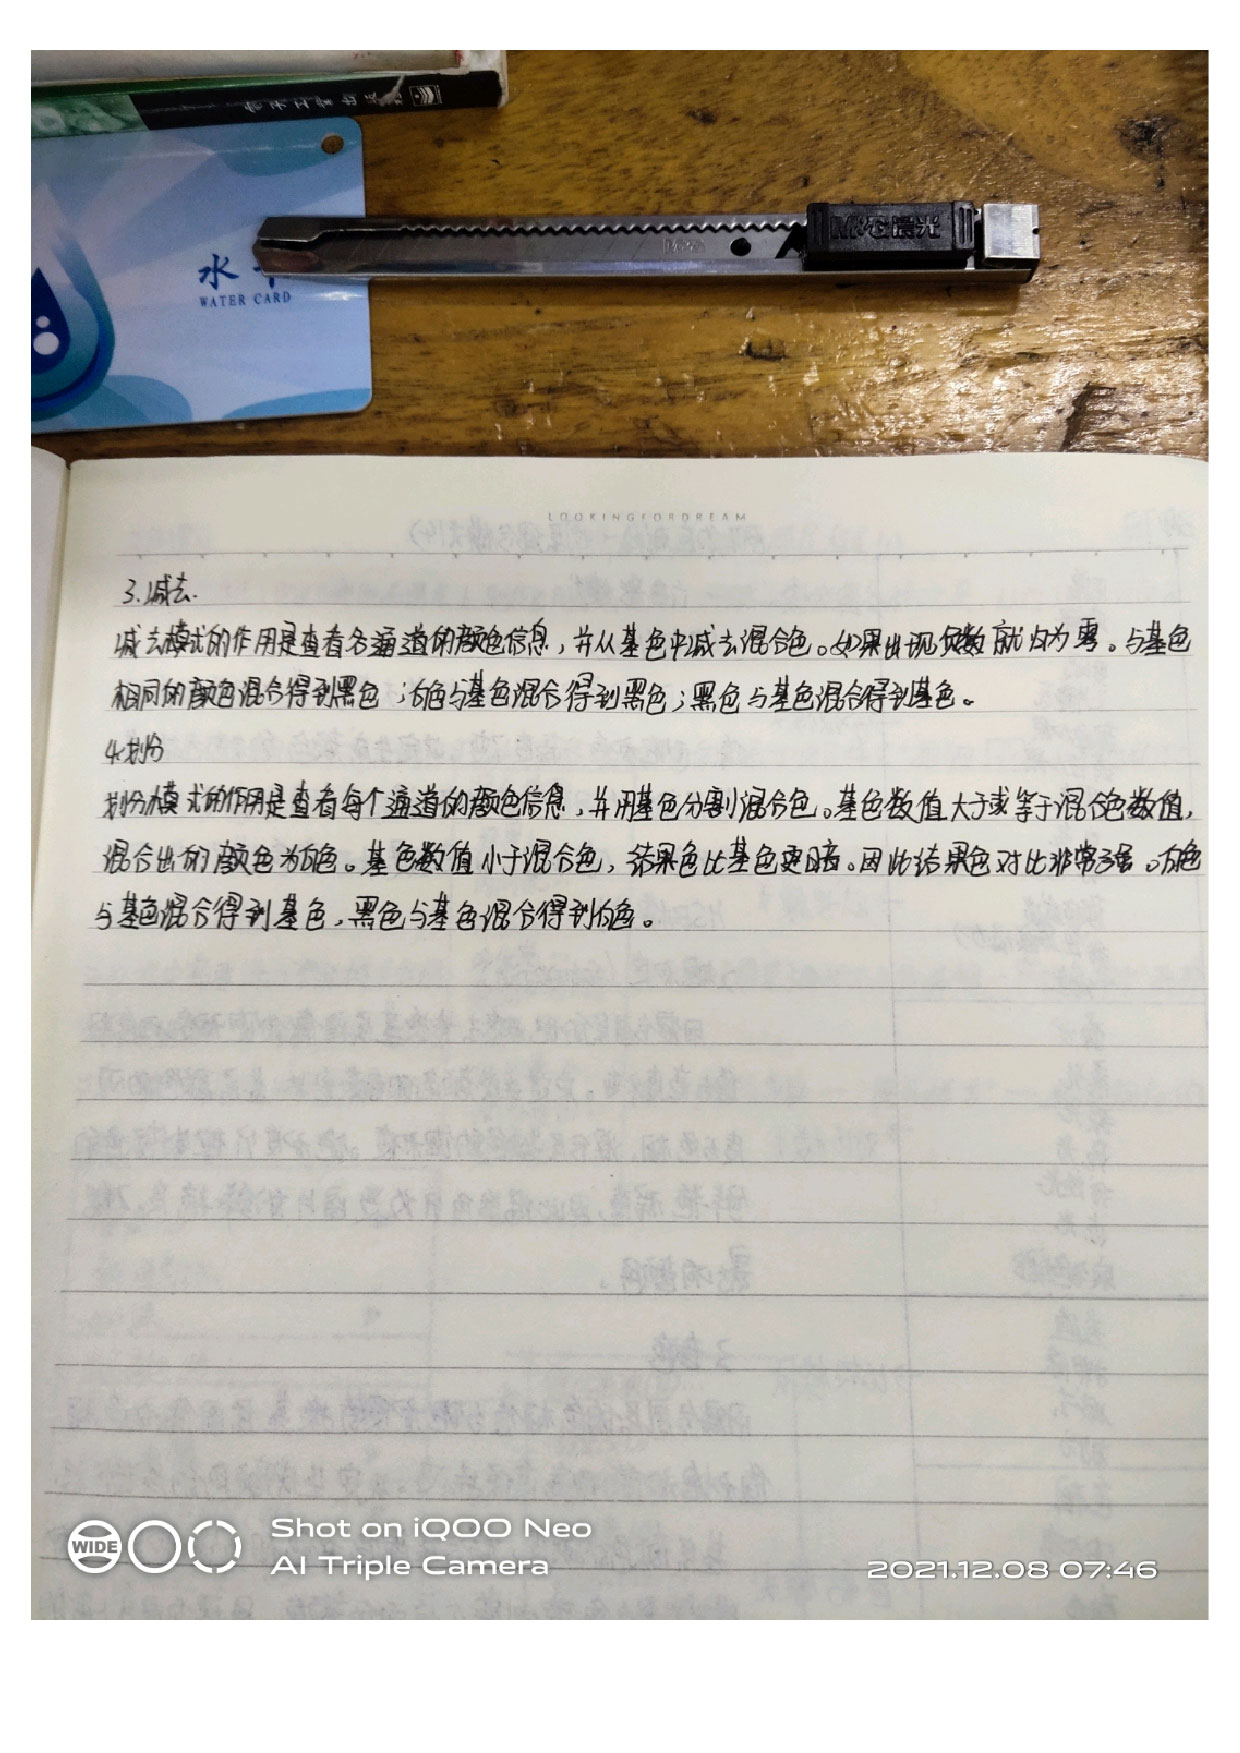 水
WATER CARD
M&G晨光
LOOKINGFORDREAM
3.减去.
减去模式的作用是查看各通道的颜色信息,并从基色中减去混合色。如果出现负数就归为零。与基色
相同的颜色混合得到黑色;白色与基色混合得到黑色;黑色与基色混合得到基色。
4.划分
划分模式的作用是查看每个通道的颜色信息,并用基色分割混合色。基色数值大于或等于混合色数值,
混合出的颜色为白色。基色数值小于混合色,结果色比基色更暗。因此结果色对比非常强。白色
与基色混合得到基色,黑色与基色混合得到白色。
WIDE
Shot on iQOO Neo
AI Triple Camera
2021.12.08 07:46